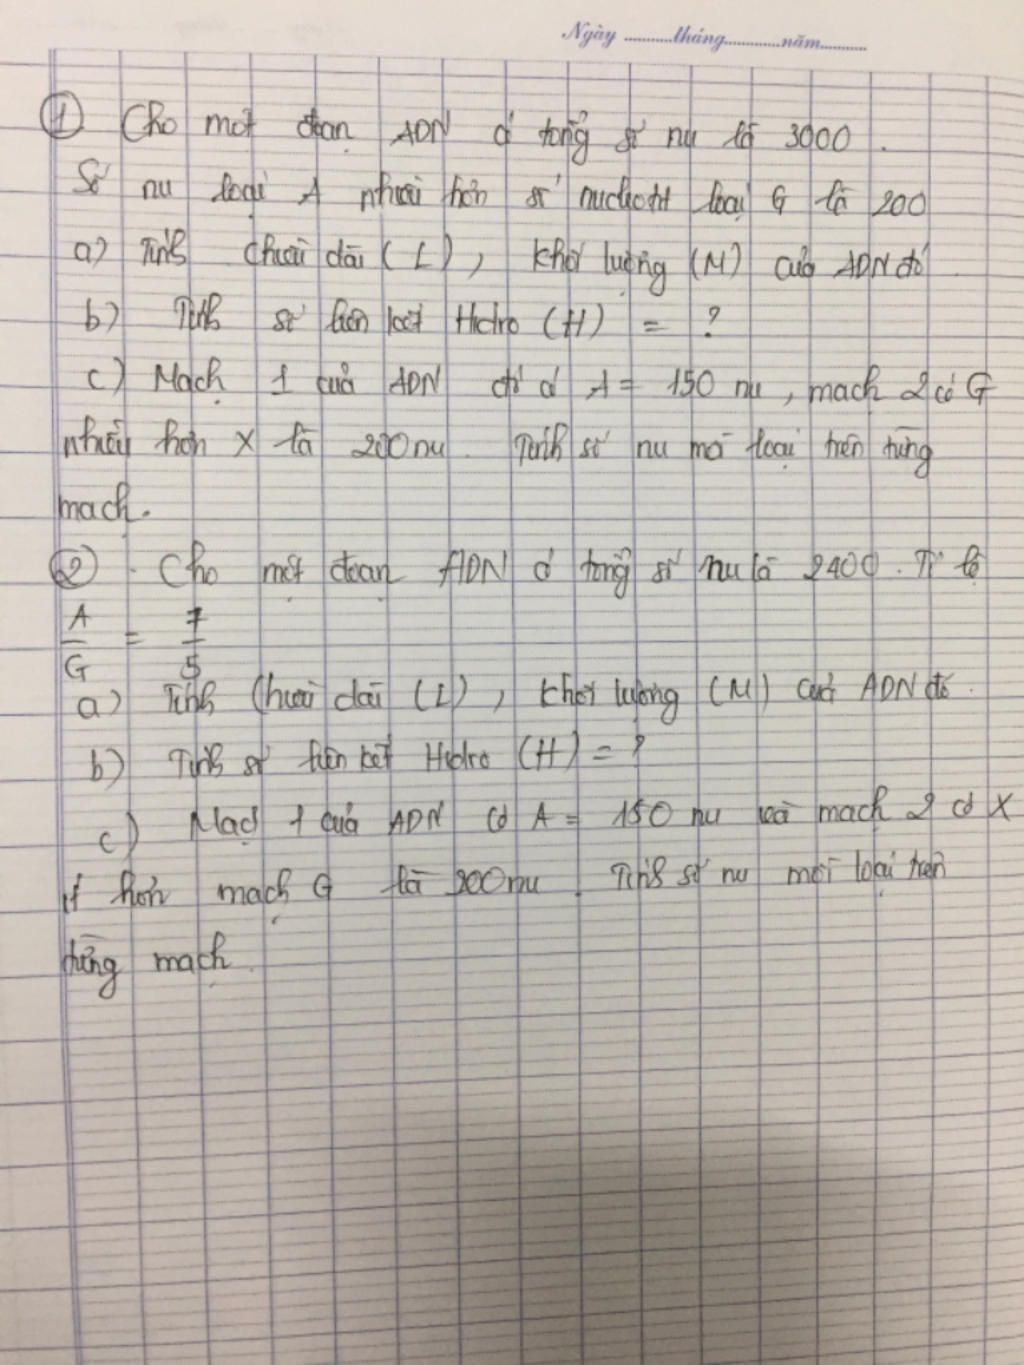 Ngày ..........tháng............năm..........
① Cho một đoạn ADN có tổng số nu là 3000.
Số nu loại A nhiều hơn số nucleotit loại G là 200
a) Tính chiều dài (L), khối lượng (M) của ADN đó
b) Tính số liên kết Hidro (H) = ?
c) Mạch 1 của ADN đó có A = 150 nu, mạch 2 có G
nhiều hơn X là 200 nu. Tính số nu mỗi loại trên từng
mạch.
② Cho một đoạn ADN có tổng số nu là 2400. Tỉ lệ
A/G = 7/5
a) Tính chiều dài (L), khối lượng (M) của ADN đó.
b) Tính số liên kết Hidro (H) = ?
c) Mạch 1 của ADN có A = 150 nu và mạch 2 có X
ít hơn mạch G là 200 nu. Tính số nu mỗi loại trên
từng mạch.